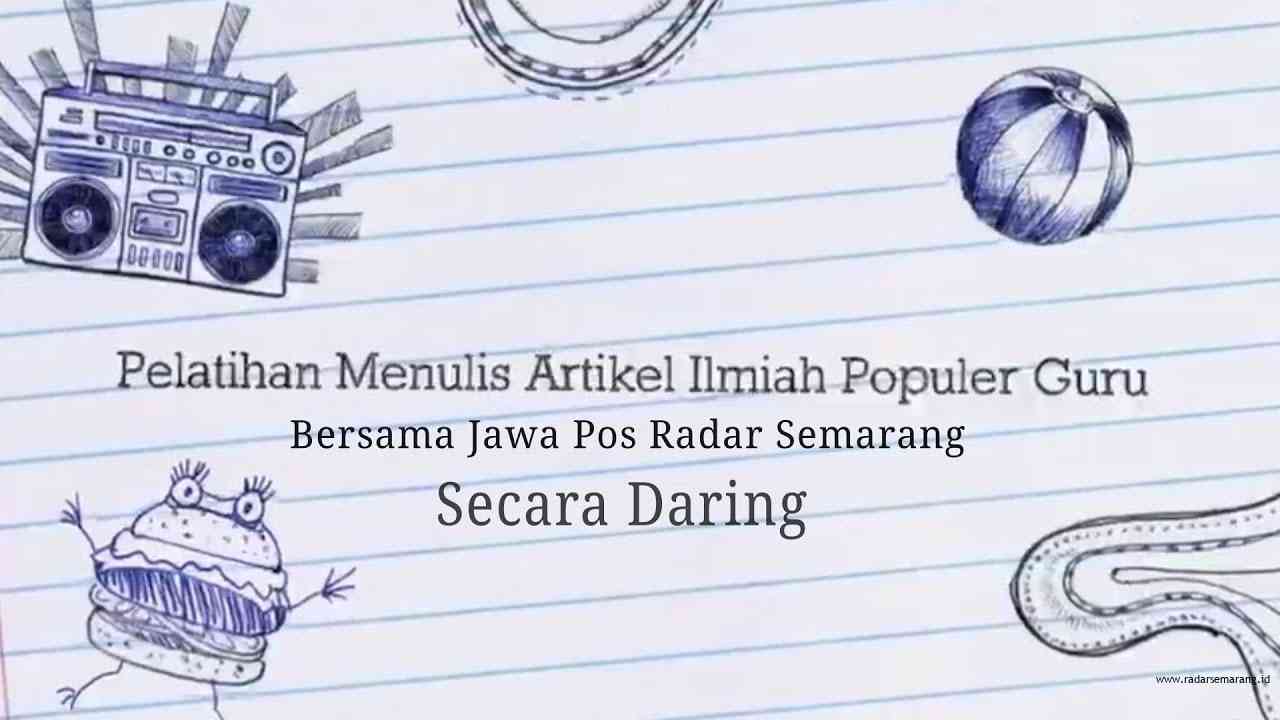 Pelatihan Menulis Artikel Ilmiah Populer Guru
Bersama Jawa Pos Radar Semarang
Secara Daring
www.radarsemarang.id